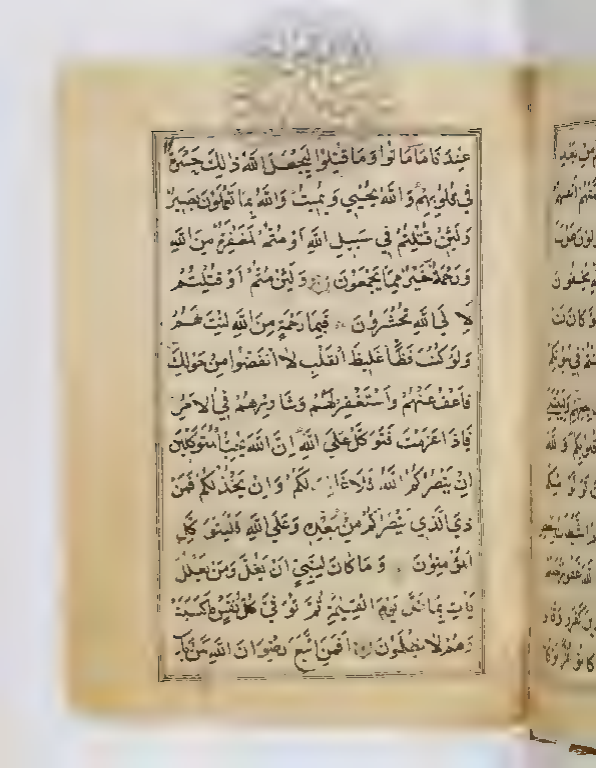 عِنْدَنَا مَا مَاتُوا وَمَا قُتِلُوا لِيَجْعَلَ اللّٰهُ ذٰلِكَ حَسْرَةً
فِي قُلُوبِهِمْ وَاللّٰهُ يُحْيِي وَيُمِيتُ وَاللّٰهُ بِمَا تَعْمَلُونَ بَصِيرٌ
وَلَئِنْ قُتِلْتُمْ فِي سَبِيلِ اللّٰهِ اَوْ مُتُّمْ لَمَغْفِرَةٌ مِنَ اللّٰهِ
وَرَحْمَةٌ خَيْرٌ مِمَّا يَجْمَعُونَ وَلَئِنْ مُتُّمْ اَوْ قُتِلْتُمْ
لَاِلَى اللّٰهِ تُحْشَرُونَ فَبِمَا رَحْمَةٍ مِنَ اللّٰهِ لِنْتَ لَهُمْ
وَلَوْ كُنْتَ فَظًّا غَلِيظَ الْقَلْبِ لَانْفَضُّوا مِنْ حَوْلِكَ
فَاعْفُ عَنْهُمْ وَاسْتَغْفِرْ لَهُمْ وَشَاوِرْهُمْ فِي الْاَمْرِ
فَاِذَا عَزَمْتَ فَتَوَكَّلْ عَلَى اللّٰهِ اِنَّ اللّٰهَ يُحِبُّ الْمُتَوَكِّلِينَ
اِنْ يَنْصُرْكُمُ اللّٰهُ فَلَا غَالِبَ لَكُمْ وَاِنْ يَخْذُلْكُمْ فَمَنْ
ذَا الَّذِي يَنْصُرُكُمْ مِنْ بَعْدِهِ وَعَلَى اللّٰهِ فَلْيَتَوَكَّلِ
الْمُؤْمِنُونَ وَمَا كَانَ لِنَبِيٍّ اَنْ يَغُلَّ وَمَنْ يَغْلُلْ
يَاْتِ بِمَا غَلَّ يَوْمَ الْقِيٰمَةِ ثُمَّ تُوَفّٰى كُلُّ نَفْسٍ مَا كَسَبَتْ
وَهُمْ لَا يُظْلَمُونَ اَفَمَنِ اتَّبَعَ رِضْوَانَ اللّٰهِ كَمَنْ بَاءَ